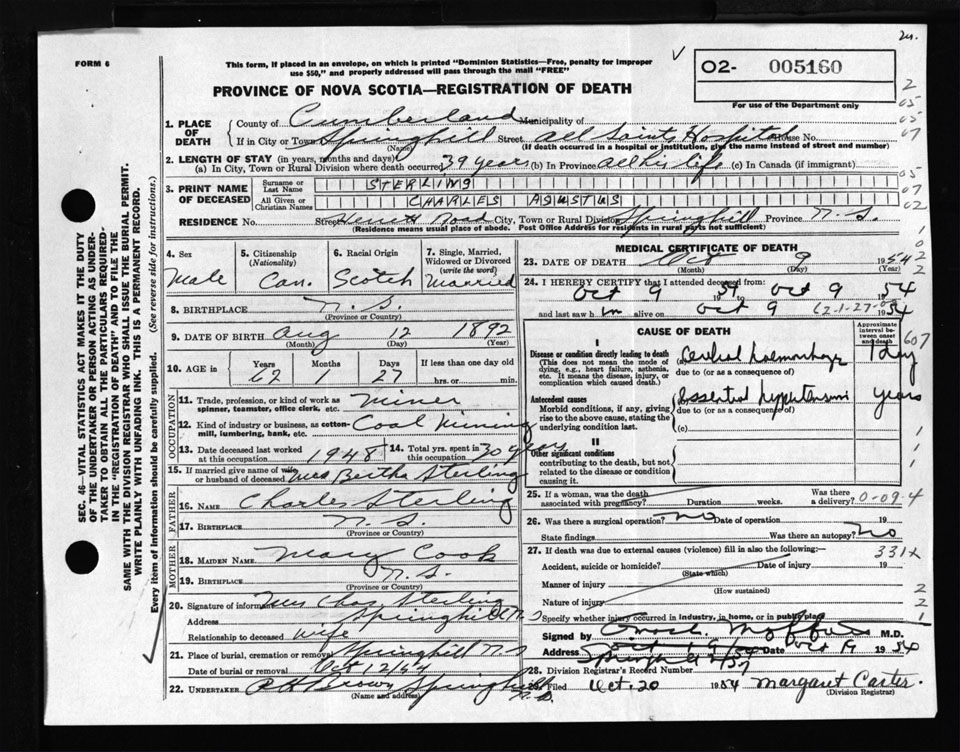 FORM 6
This form, if placed in an envelope, on which is printed "Dominion Statistics—Free, penalty for improper
use $50," and properly addressed will pass through the mail "FREE"
PROVINCE OF NOVA SCOTIA—REGISTRATION OF DEATH
O2- 005160
For use of the Department only
1. PLACE OF DEATH
County of Cumberland Municipality of
If in City or Town Springhill Street All Saints Hospital House No.
(Name) (If death occurred in a hospital or institution, give the name instead of street and number)
2. LENGTH OF STAY (in years, months and days)
(a) In City, Town or Rural Division where death occurred 39 years (b) In Province all his life (c) In Canada (if immigrant)
3. PRINT NAME OF DECEASED
Surname or Last Name STERLING
All Given or Christian Names CHARLES AGUSTUS
RESIDENCE No. Street Herrett Road City, Town or Rural Division Springhill Province N.S.
(Residence means usual place of abode. Post Office Address for residents in rural parts not sufficient)
4. Sex Male
5. Citizenship (Nationality) Can.
6. Racial Origin Scotch
7. Single, Married, Widowed or Divorced (write the word) Married
8. BIRTHPLACE N.S.
(Province or Country)
9. DATE OF BIRTH Aug 12 1892
(Month) (Day) (Year)
10. AGE in Years 62 Months 1 Days 27 If less than one day old hrs. or min.
OCCUPATION
11. Trade, profession, or kind of work as spinner, teamster, office clerk, etc. Miner
12. Kind of industry or business, as cotton-mill, lumbering, bank, etc. Coal Mining
13. Date deceased last worked at this occupation 1948
14. Total yrs. spent in this occupation 30 years
15. If married give name of wife or husband of deceased Mrs Bertha Sterling
FATHER
16. NAME Charles Sterling
17. BIRTHPLACE N.S.
(Province or Country)
MOTHER
18. MAIDEN NAME Mary Cook
19. BIRTHPLACE N.S.
(Province or Country)
20. Signature of informant Mrs Chas Sterling
Address Springhill N.S
Relationship to deceased wife
21. Place of burial, cremation or removal Springhill N.S
Date of burial or removal Oct 12/54
22. UNDERTAKER Brown Springhill N.S.
(Name and address)
MEDICAL CERTIFICATE OF DEATH
23. DATE OF DEATH Oct 9 1954
(Month) (Day)
24. I HEREBY CERTIFY that I attended deceased from
Oct 9 1954 to Oct 9 1954
and last saw him alive on Oct 9 62-1-27-0 1954
CAUSE OF DEATH
Approximate interval between onset and death
I
Disease or condition directly leading to death
(This does not mean the mode of dying, e.g., heart failure, asthenia, etc. It means the disease, injury, or complication which caused death.)
(a) Cerebral haemorrhage 1 day
due to (or as a consequence of)
Antecedent causes
Morbid conditions, if any, giving rise to the above cause, stating the underlying condition last.
(b) Essential hypertension years
due to (or as a consequence of)
(c)
II
Other significant conditions
contributing to the death, but not related to the disease or condition causing it
25. If a woman, was the death associated with pregnancy? Duration weeks. Was there a delivery? 0-09-4
26. Was there a surgical operation? no Date of operation 19
State findings Was there an autopsy? No
27. If death was due to external causes (violence) fill in also the following:— 331x
Accident, suicide or homicide? Date of injury 19
(State which)
Manner of injury
(How sustained)
Nature of injury
Specify whether injury occurred in industry, in home, or in public place
Signed by M.D.
Address Springhill Date Oct 19 1954
28. Division Registrar's Record Number
29. Filed Oct. 20 1954 Margaret Carter.
(Division Registrar)
SEC. 46—VITAL STATISTICS ACT MAKES IT THE DUTY
OF THE UNDERTAKER OR PERSON ACTING AS UNDER-
TAKER TO OBTAIN ALL THE PARTICULARS REQUIRED
IN THE "REGISTRATION OF DEATH" AND TO FILE THE
SAME WITH THE DIVISION REGISTRAR WHO SHALL ISSUE THE BURIAL PERMIT.
WRITE PLAINLY WITH UNFADING INK. THIS IS A PERMANENT RECORD.
Every item of information should be carefully supplied. (See reverse side for instructions.)